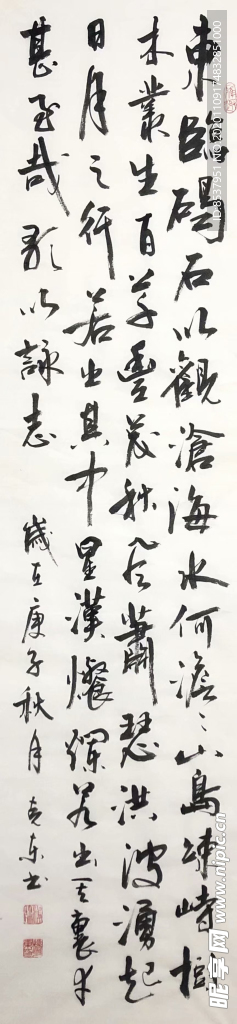 東臨碣石以觀滄海水何澹〻山島竦峙樹
木叢生百草豐茂秋風蕭瑟洪波湧起
日月之行若出其中星漢燦爛若出其裏幸
甚至哉歌以詠志
歲在庚子秋月 东书
ID:8537951 NO:20201109174832851000
昵图网 www.nipic.com